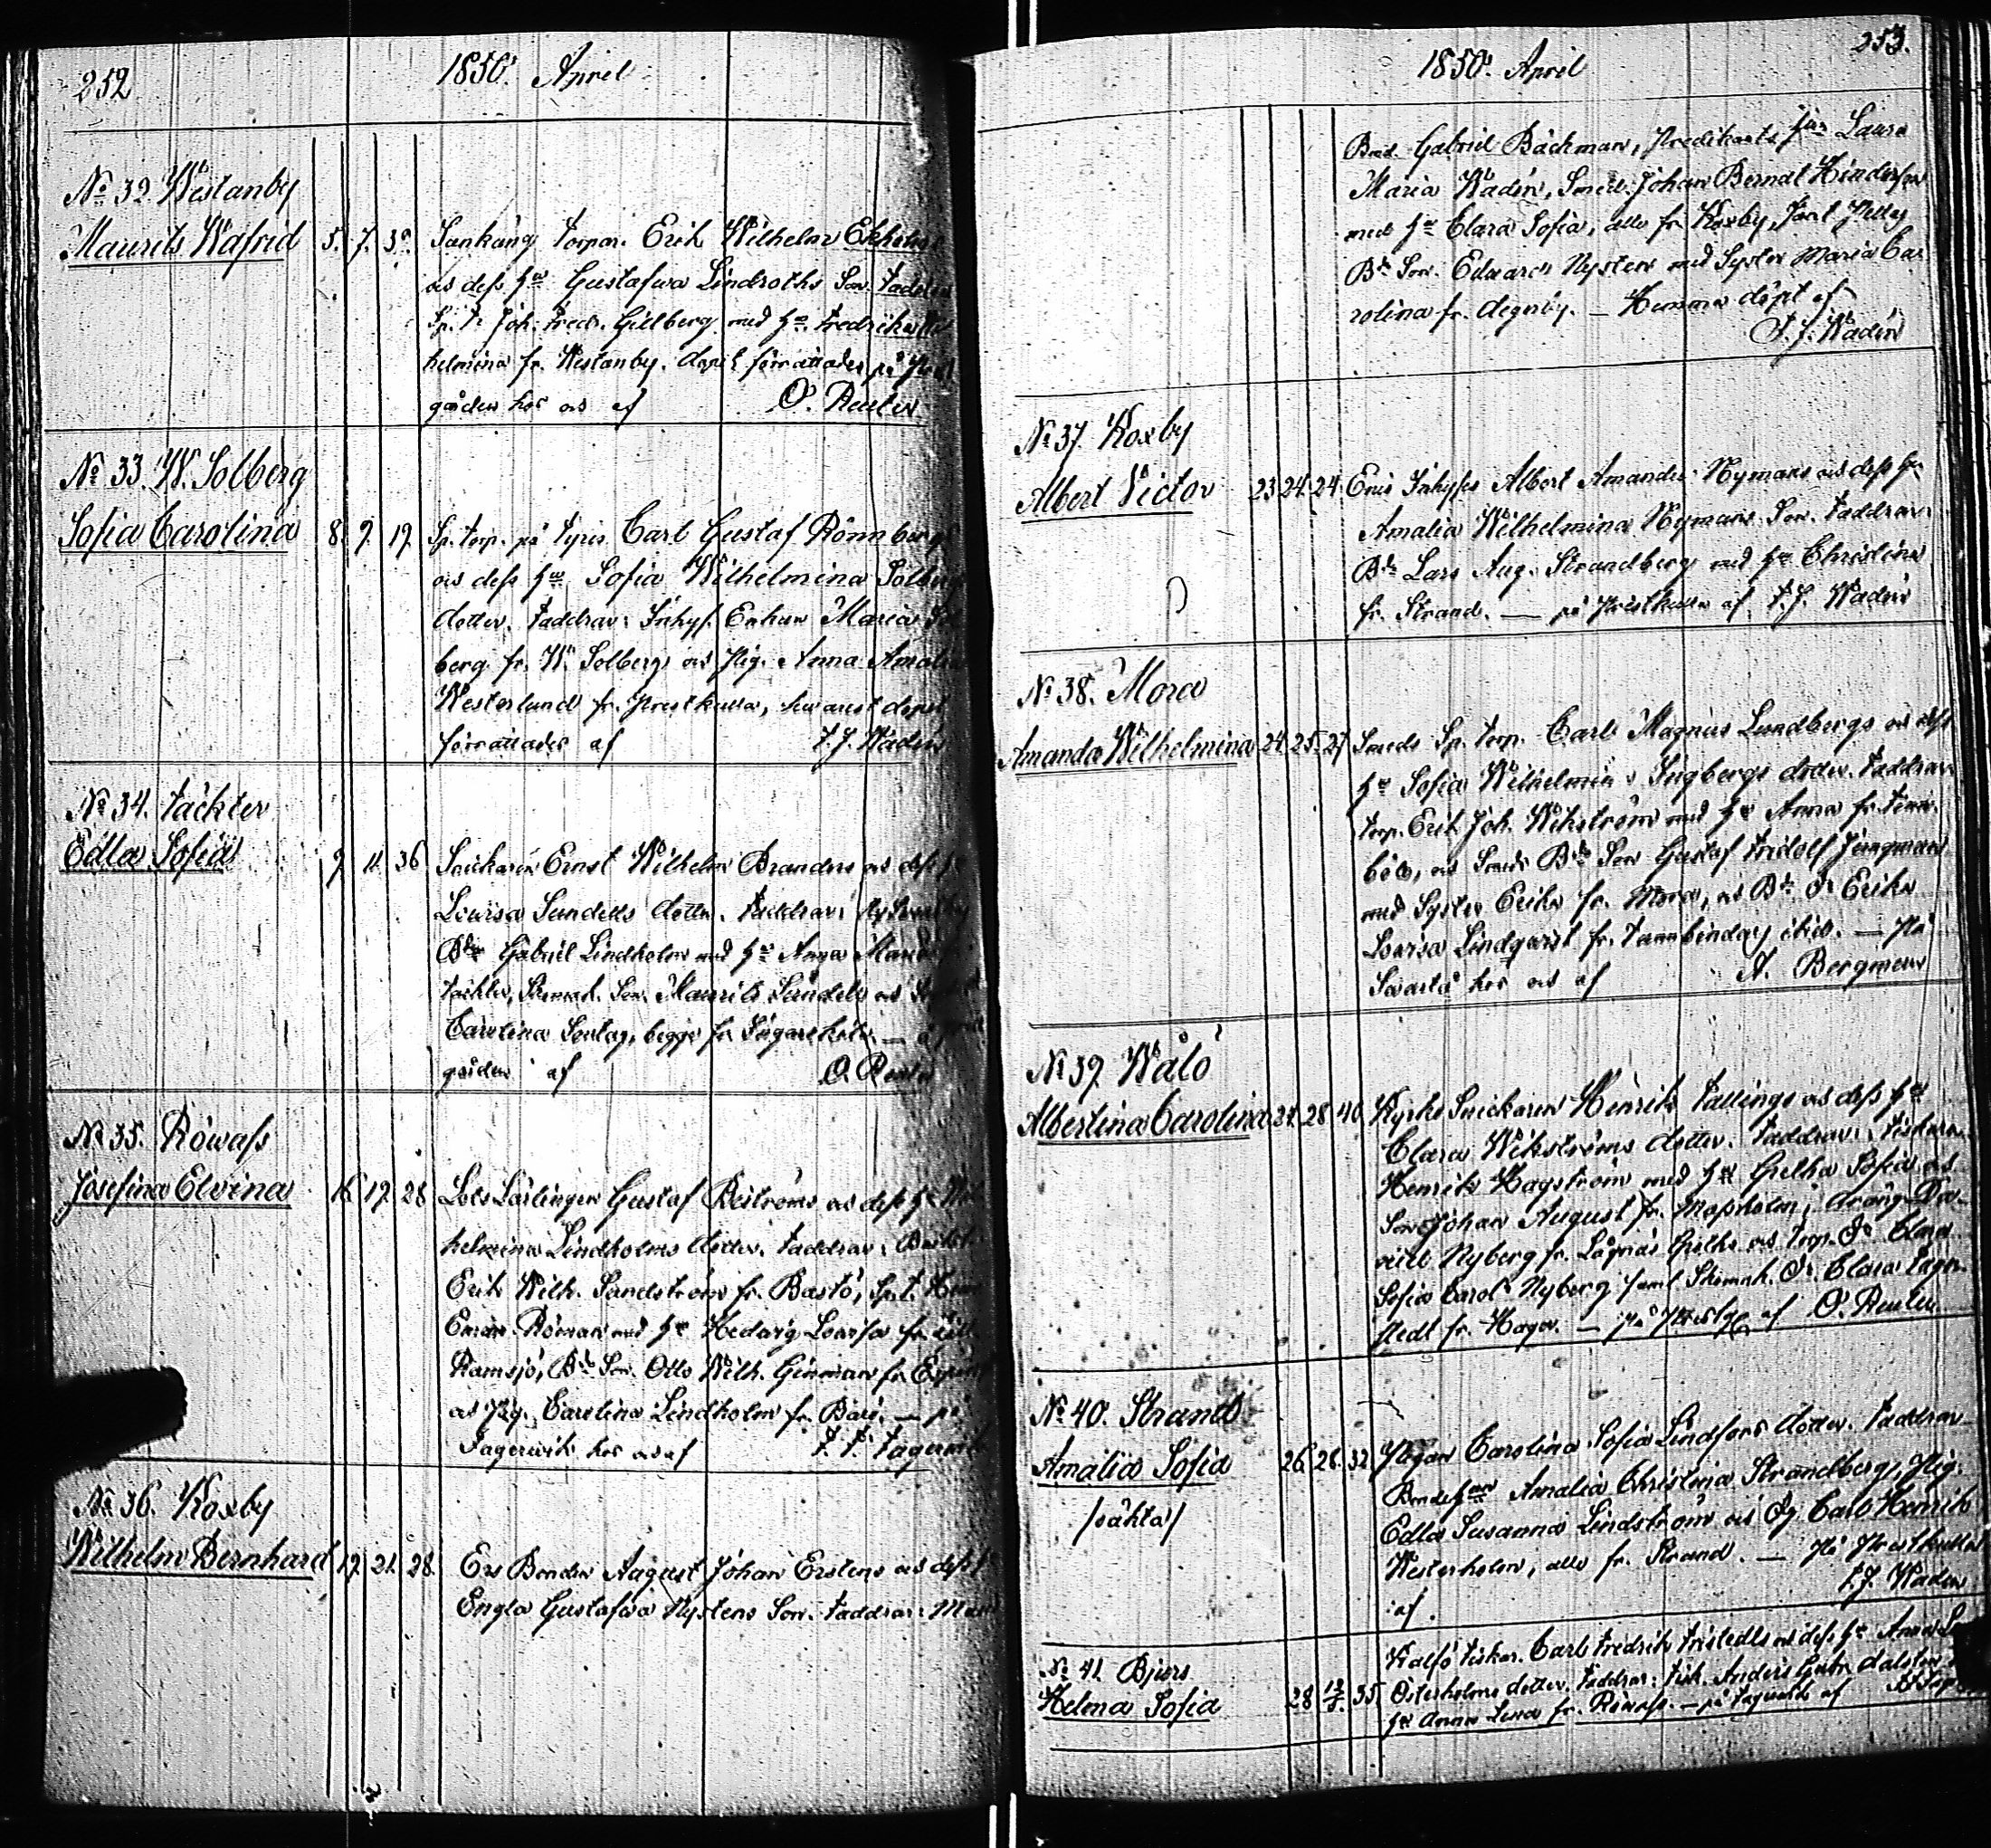 252
1850. April
No 32. Westanby
Maurits Wafrid 5. 7. 30. Torpar. Erik Wilhelm Ekholms
os dess hu Gustafwa Lindroths Son. Faddrar
Sp. t. Joh. Fredr. Gillberg med hu. Fredrika
helmina fr. Westanby. Dopet förrättades på Prest
gården hos os af O. Reuter
No 33. W. Solberg
Sofia Carolina 8. 9. 19. Sp. torp. på Carl Gustaf Rönnbergs
os dess hu Sofia Wilhelmina Solbergs
dotter. Faddrar: Inhys. Enkan Maria Sol
berg fr. W. Solberg, os Pig. Anna Amalia
Westerlund fr. Prestkulla, hwarest dopet
förrättades af F. J. Wadén
No 34. Täckter
Edla Sofia 9. 11. 36 Snickaren Ernst Wilhelm Branders os dess h
Lowisa Sundells dotter. Faddrar:
Bdn Gabriel Lindholm med hu Anna Maria f
Täckter, Skomak. Son. Maurits Sundell os
Carolina Sontag, begge fr. Ingarskila. —
gården af O. Reuter
No 35. Röwass
Josefina Elvina 16. 19. 28 Lots Lärlingen Gustaf Reströms os dess hu Wil
helmina Lindholms dotter. Faddrar:
Erik Wilh. Sandström fr. Bastö, Sp. t.
Eman. Roman med hu Hedvig Lovisa fr. Lill
Ramsjö, Bds Son. Otto Wilh. Ginman fr.
os Pig. Carolina Lindholm fr. — på
Fagerwik hos os af F. F. Fagerwik
No 36. Koxby
Wilhelm Bernhard 17. 21. 28. Ers Bonden August Johan Erstens os dess h
Engla Gustafwa Nystens Son. Faddrar:
253.
1850. April
Bond. Gabriel Bäckman, Predikants hun Laura
Maria Wadén, Smed. Johan Berndt Hinderson
med hu Clara Sofia, alle fr. Koxby, samt
Bds Son. Edvard Nysten med Syster Maria Ca
rolina fr. Degerby. — Hemma döpt af
F. J. Wadén
No 37. Koxby
Albert Victor 23. 24. 24. Ers Inhyses Albert Amandus Nymans os dess hu
Amalia Wilhelmina Nymans Son. Faddrar:
Bdn Lars Aug. Strandberg med hu Christina
fr. Strand. — på Prestkulla af F. J. Wadén
No 38. Mora
Amanda Wilhelmina 24. 25. 27 Smeds Sp. torp. Carl Magnus Lundbergs os dess
hu Sofia Wilhelmina Ingbergs dotter. Faddrar:
torp. Erik Joh. Wikström med hu Anna fr.
böle, os Smeds Bds Son Gustaf Fridolf Jungman
med Syster Erika fr. Mora, os Bds Dr Erika
Lovisa Lindqwist fr. — På
Swartå hos os af A. Bergman
No 39. Wålö
Albertina Carolina 27. 28. 40 Kyrko Snickaren Henrik Fallings os dess hu
Clara Wikströms dotter. Faddrar: Fiskaren
Henrik Hagström med hu Gretha Sofia os
Son Johan August fr. Mossholm; dräng Da-
vid Nyberg fr. Lågnäs Gretha os torp. Dr
Sofia Carol. Nyberg samt Skomak. Dr. Clara Fager
stedt fr. Hagen. — på Prestgn af O. Reuter
No 40. Strand
Amalia Sofia 26. 28. 32. Pigan Carolina Sofia Lindfors dotter. Faddrar
/oäkta/ Bondehun Amalia Christina Strandberg, Pig.
Edla Susanna Lindström os Dg Carl Henrik
Westerholm, alle fr. Strand. — På Prestkulla
af. F. J. Wadén
No 41. Bjurs
Helena Sofia 28 12/5. 35. Kalfö fiskar. Carl Fredrik Fristedts os dess hu Anna
Österholms dotter. Faddrar: Fisk. Anders Gustn Dalsten
hu Anna Lena fr. Röwass. — på Fagerwik af